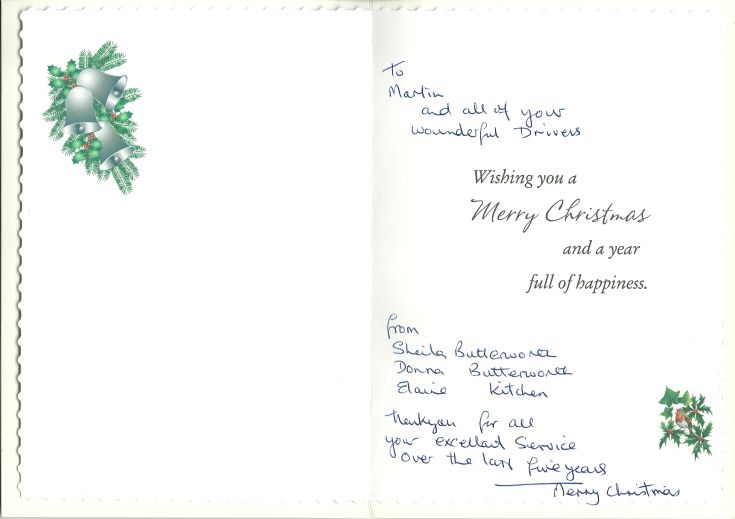 To
Martin
and all of your
wounderful Drivers
Wishing you a
Merry Christmas
and a year
full of happiness.
from
Sheila Butterworth
Donna Butterworth
Elaine Kitchen
Thankyou for all
your excellad Service
over the last five years
Merry Christmas